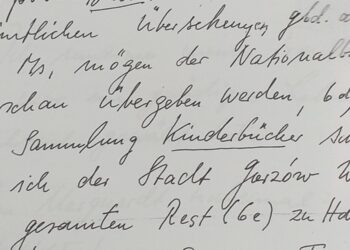 ntlichen Übersetzungen, gbd. a
Ms, mögen der Nationalb
schau übergeben werden, bd
Sammlung Kinderbücher s
ich der Stadt Gorzów W
gesamten Rest (6e) zu Ha